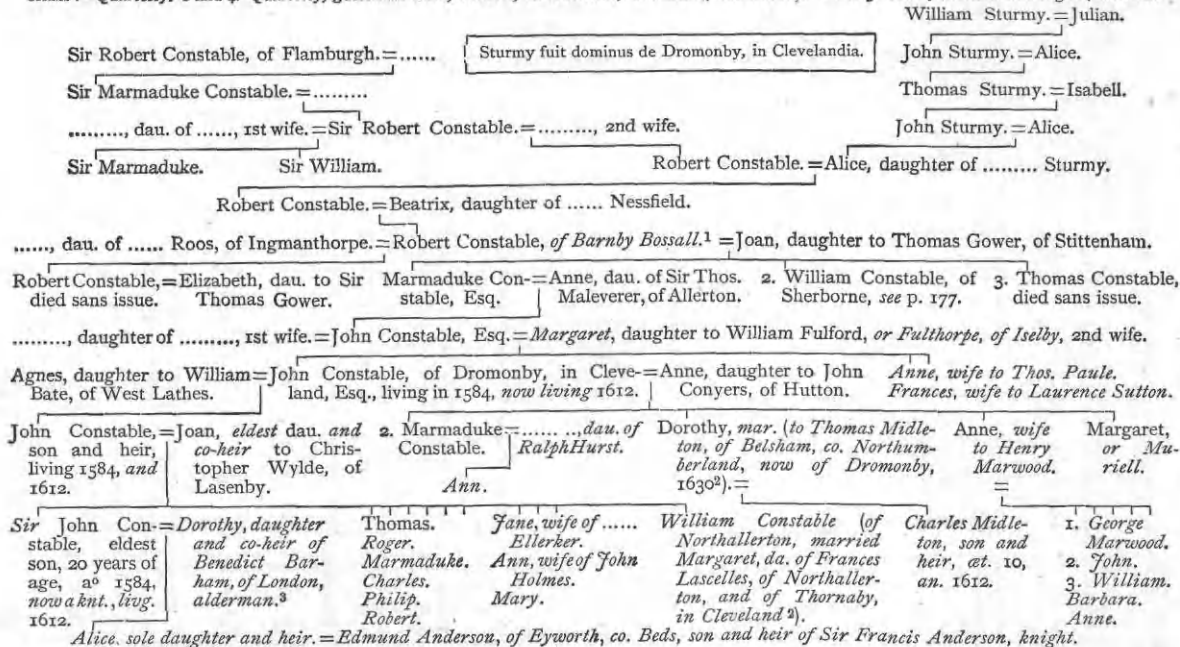 William Sturmy.=Julian.
Sir Robert Constable, of Flamburgh.=......
Sturmy fuit dominus de Dromonby, in Clevelandia.
John Sturmy.=Alice.
Sir Marmaduke Constable.=.........
Thomas Sturmy.=Isabell.
........., dau. of ......, 1st wife.=Sir Robert Constable.=........., 2nd wife.
John Sturmy.=Alice.
Sir Marmaduke. Sir William.
Robert Constable.=Alice, daughter of ......... Sturmy.
Robert Constable.=Beatrix, daughter of ...... Nessfield.
......, dau. of ...... Roos, of Ingmanthorpe.=Robert Constable, of Barnby Bossall.¹=Joan, daughter to Thomas Gower, of Stittenham.
Robert Constable,=Elizabeth, dau. to Sir
died sans issue. Thomas Gower.
Marmaduke Con-=Anne, dau. of Sir Thos.
stable, Esq. Maleverer, of Allerton.
2. William Constable, of
Sherborne, see p. 177.
3. Thomas Constable,
died sans issue.
........., daughter of ........., 1st wife.=John Constable, Esq.=Margaret, daughter to William Fulford, or Fulthorpe, of Iselby, 2nd wife.
Agnes, daughter to William=John Constable, of Dromonby, in Cleve-=Anne, daughter to John
Bate, of West Lathes. land, Esq., living in 1584, now living 1612. Conyers, of Hutton.
Anne, wife to Thos. Paule.
Frances, wife to Laurence Sutton.
John Constable,=Joan, eldest dau. and
son and heir, co-heir to Chris-
living 1584, and topher Wylde, of
1612. Lasenby.
2. Marmaduke=........., dau. of
Constable. Ralph Hurst.
Ann.
Dorothy, mar. (to Thomas Midle-
ton, of Belsham, co. Northum-
berland, now of Dromonby,
1630²).=
Anne, wife
to Henry
Marwood.
=
Margaret,
or Mu-
riell.
Sir John Con-=Dorothy, daughter
stable, eldest and co-heir of
son, 20 years of Benedict Bar-
age, aº 1584, ham, of London,
now a knt., livg. alderman.³
1612.
Thomas.
Roger.
Marmaduke.
Charles.
Philip.
Robert.
Jane, wife of ......
Ellerker.
Ann, wife of John
Holmes.
Mary.
William Constable (of
Northallerton, married
Margaret, da. of Frances
Lascelles, of Northaller-
ton, and of Thornaby,
in Cleveland²).
Charles Midle-
ton, son and
heir, æt. 10,
an. 1612.
1. George
Marwood.
2. John.
3. William.
Barbara.
Anne.
Alice, sole daughter and heir.=Edmund Anderson, of Eyworth, co. Beds, son and heir of Sir Francis Anderson, knight.